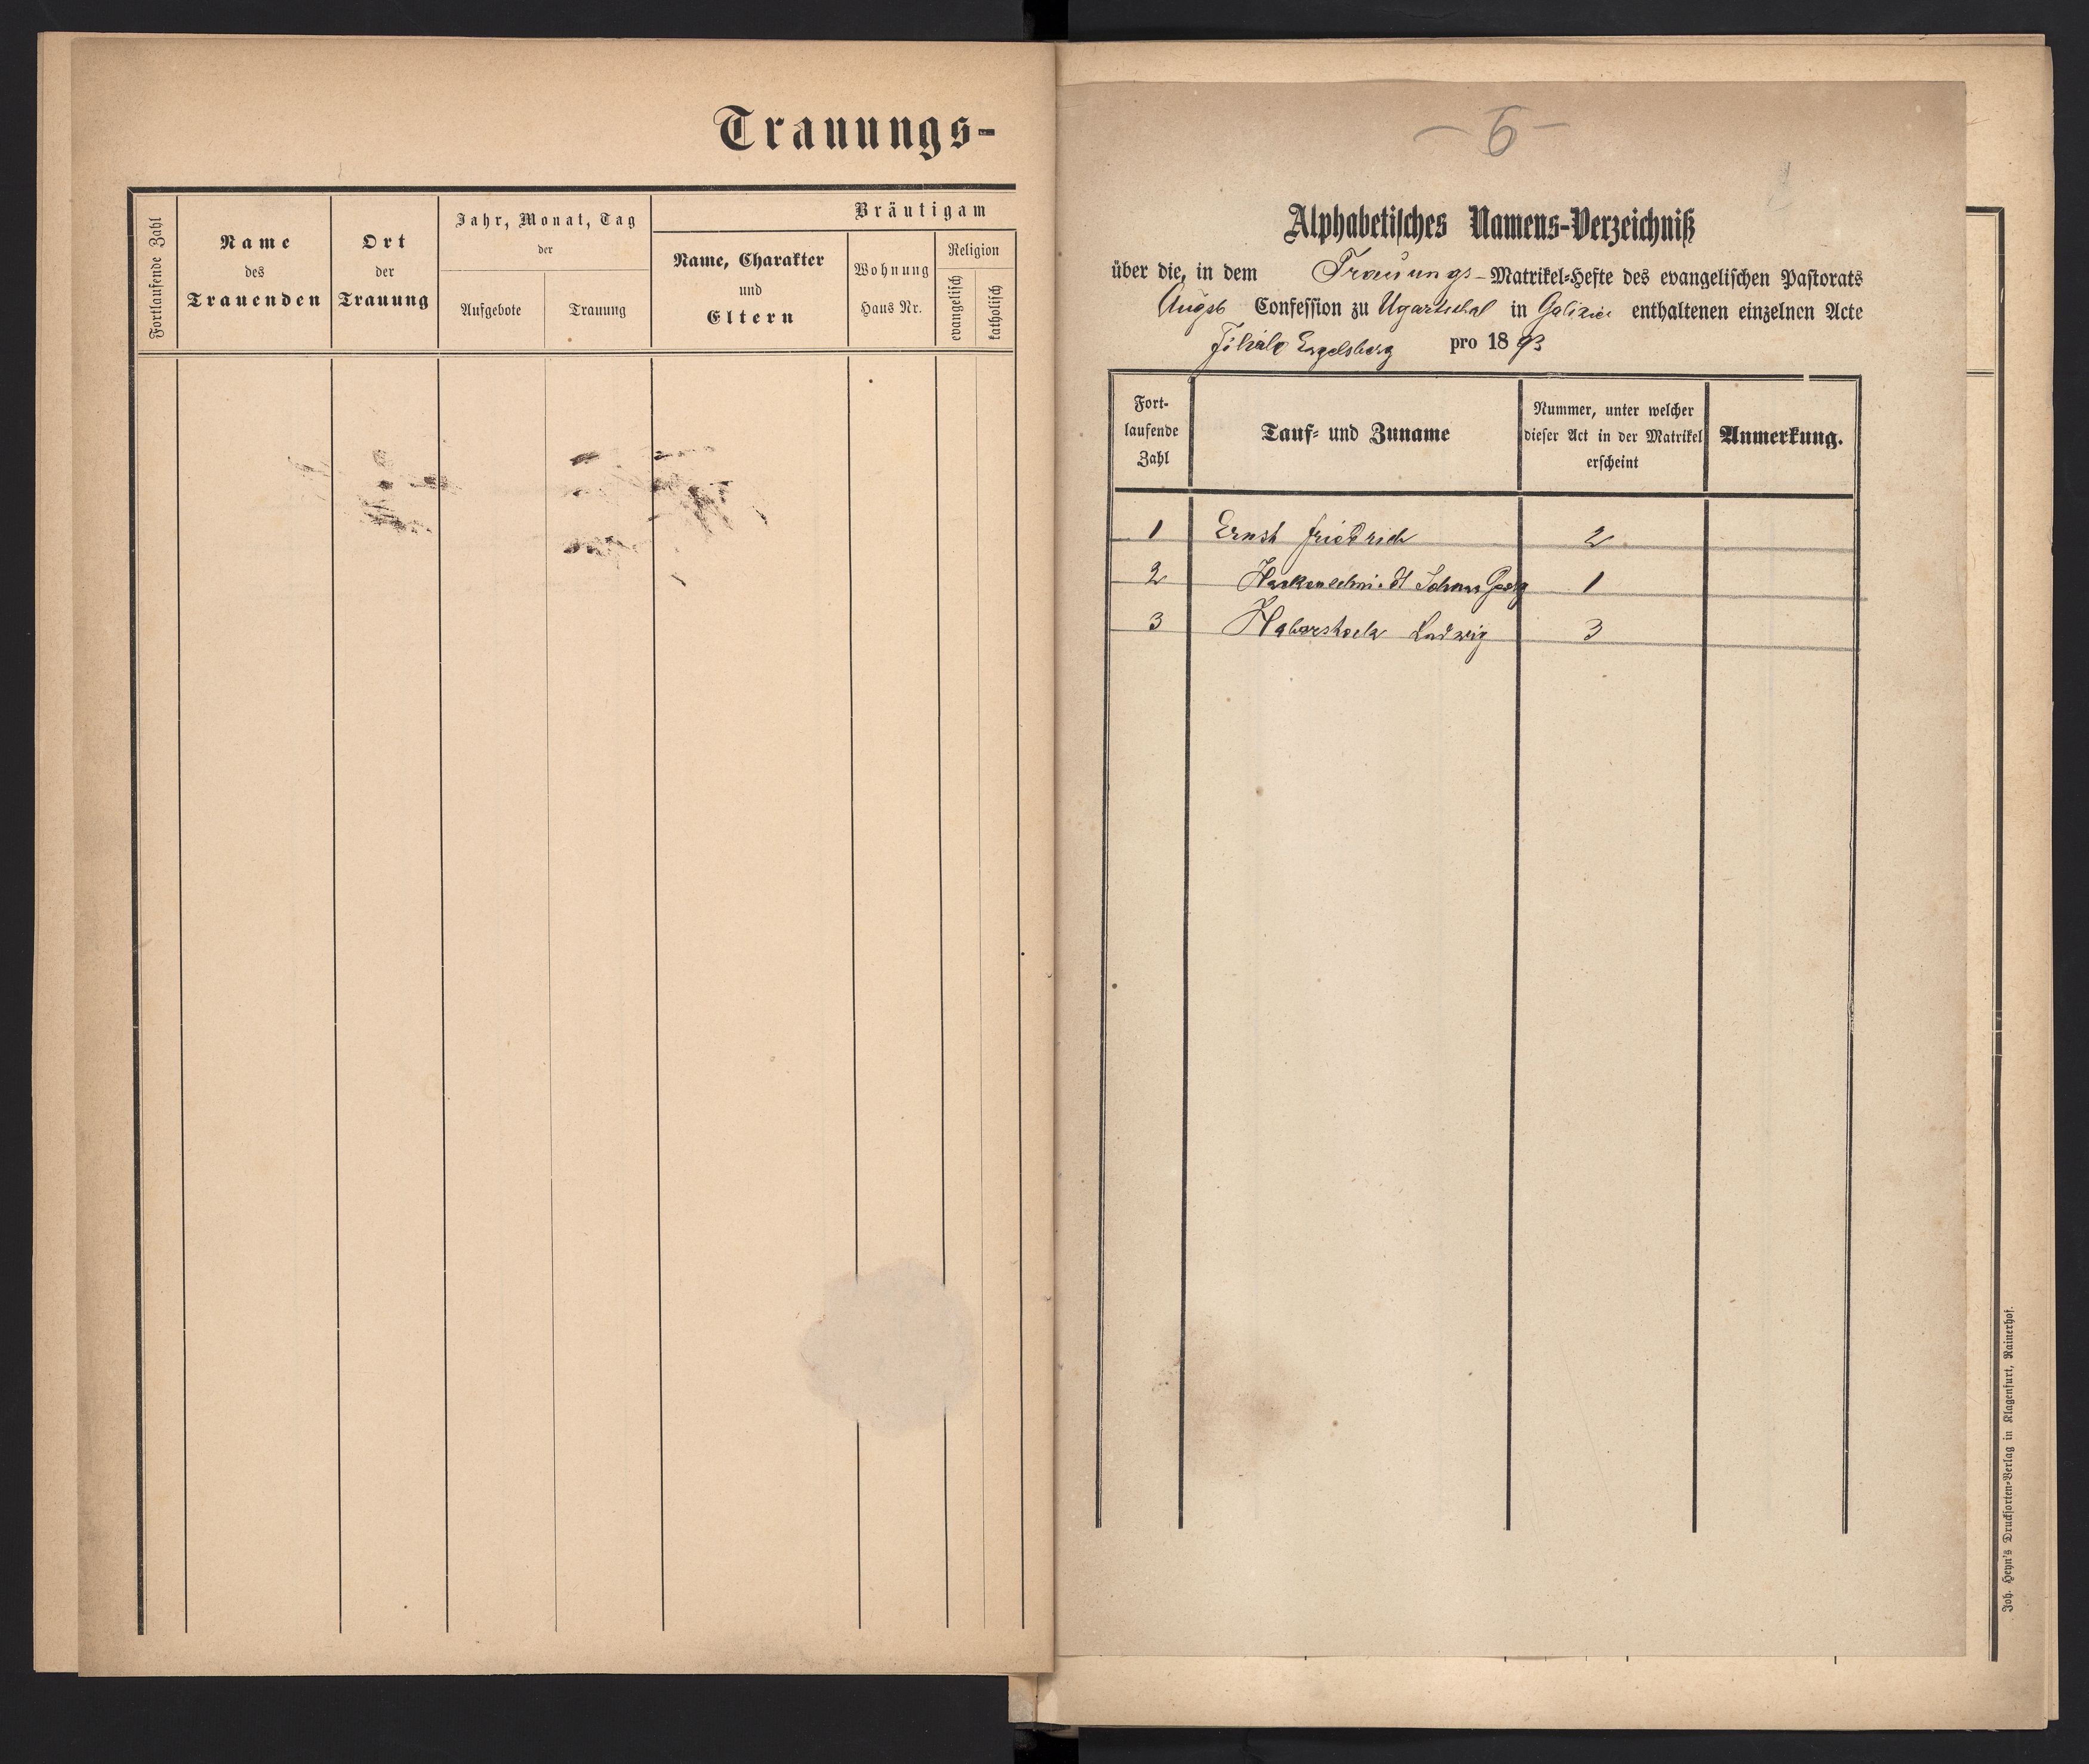 Trauungs-
Fortlaufende Zahl
Name
des
Trauenden
Ort
der
Trauung
Jahr, Monat, Tag
der
Aufgebote
Trauung
Bräutigam
Name, Charakter
und
Eltern
Wohnung
Haus Nr.
Religion
evangelisch
katholisch
– 6 –
Alphabetisches Namens-Verzeichniß
über die, in dem Trauungs-Matrikel-Hefte des evangelischen Pastorats
Augsb Confession zu Ugartsthal in Galizien enthaltenen einzelnen Acte
Filiale Engelsberg pro 1893
Fort-
laufende
Zahl
Tauf- und Zuname
Nummer, unter welcher
dieser Act in der Matrikel
erscheint
Anmerkung.
1 Ernst Friedrich 2
2 Hackenschmidt Johann Georg 1
3 Haberstock Ludwig 3
Joh. Heyn's Drucksorten-Verlag in Klagenfurt, Rainerhof.